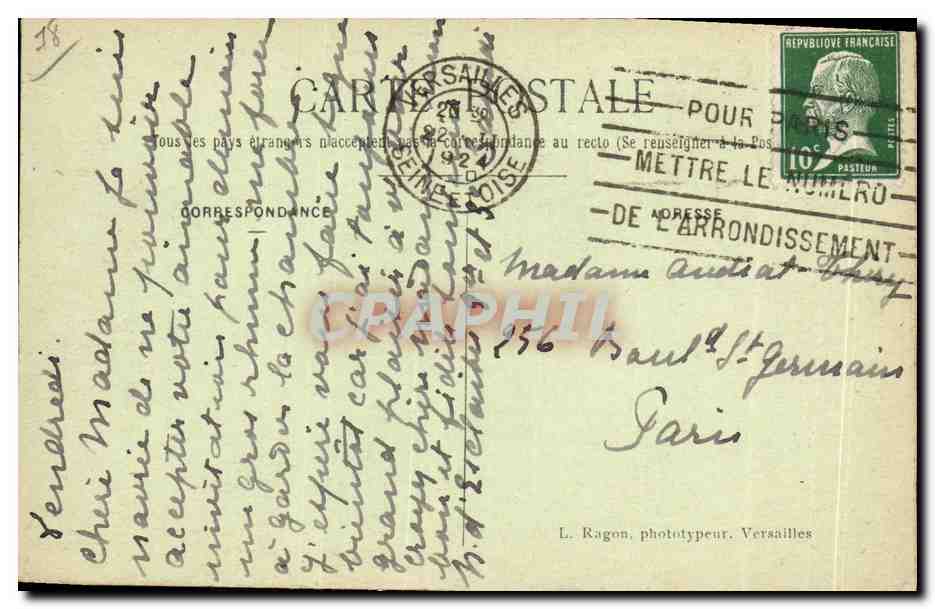 18
CARTE POSTALE
Tous les pays étrangers n'acceptent pas la correspondance au recto (Se renseigner à la Pos
CORRESPONDANCE
ADRESSE
VERSAILLES
20
1924
SEINE ET OISE
POUR PARIS
METTRE LE NUMERO
DE L'ARRONDISSEMENT
REPVBLIQVE FRANÇAISE
POSTES
10c
PASTEUR
Vendredi.
Chère Madame Je suis
navrée de ne pouvoir
accepter votre aimable
invitation pour demain
un gros rhume me force
à garder la chambre
J'espère vous faire signe
bientôt car j'ai toujours
grand plaisir à vous voir
Croyez chère Madame à mon
bon et fidèle
Madame Audiat
256 Boul.d St Germain
Paris
CPAPHIL
L. Ragon, phototypeur, Versailles